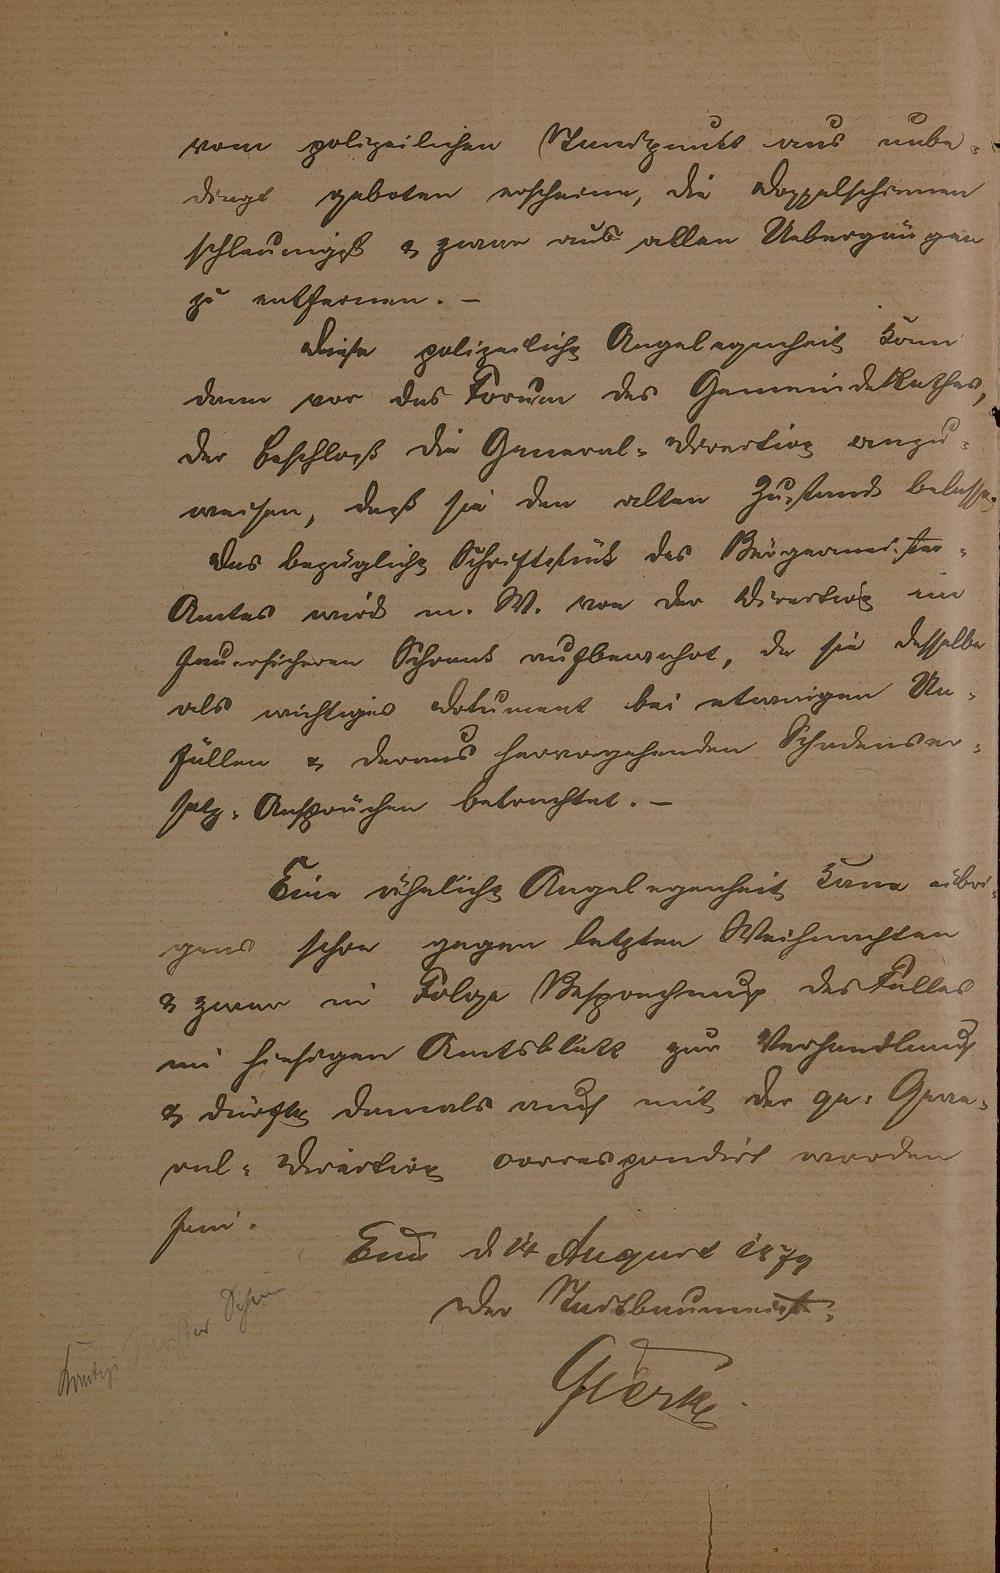 vom polizeilichen Standpunkt aus unbe-
dingt geboten erscheine, die Doppelschienen
schleunigst & zwar aus allen Uebergängen
zu entfernen. —
Diese polizeiliche Angelegenheit kam
dann vor das Forum des GemeindeRathes,
der beschloß die General-Direction anzu-
weisen, daß sie den alten Zustand belasse.
Das bezügliche Schriftstük des Bürgermeister-
Amtes wird m. W. von der Direction im
feuersicheren Schrank aufbewahrt, da sie desselbe
als wichtiges Dokument bei etwaigen Un-
fällen & daraus hervorgehenden Schadenser-
satz-Ansprüchen betrachtet. —
Eine ähnliche Angelegenheit kam übri-
gens schon gegen letzten Weihnachten
& zwar in Folge Besprechung des Falles
im hiesigen Amtsblatt zur Verhandlung
& dürfte damals auch mit der gr: Gene-
ral-Direction correspondirt worden
sein.
Ems d 14 August 1879
Der Stadtbaumeist: